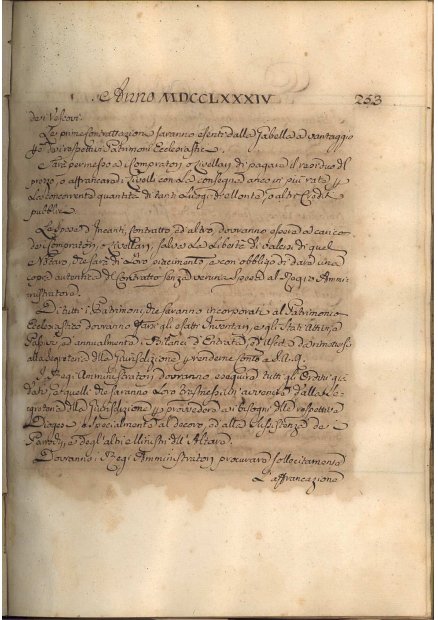 Anno MDCCLXXXIV 253
dei Vescovi.
Le prime contrattazioni saranno esenti dalla Gabella a vantaggio
dei rispettivi Patrimoni Ecclesiastici.
Sarà permesso ai Compratori, o Livellari di pagare il residuo del
prezzo, o affrancare i Livelli con la consegna anco in più rate
la concorrente quantità di tanti Luoghi di Monte, o altri Crediti
pubblici.
Le Spese d'Incanti, contratto ed altro, dovranno essere a carico
dei Compratori, o Livellari, salva la Libertà di valersi di quel
Notaro che sarà di Loro piacimento, e con obbligo di dare una
copia autentica del Contratto senza veruna spesa al Regio Ammi-
nistratore.
Di tutti i Patrimoni, che saranno incorporati al Patrimonio
Ecclesiastico dovranno farsi gli esatti Inventari, e gli Stati Attivi e
Passivi, ed annualmente i Bilanci d'Entrata, ed Uscita da rimettersi
alla Segreteria della Giurisdizione renderne conto a S.A.R.
I Regi Amministratori dovranno eseguire tutti gli Ordini già
dati, e quelli che saranno Loro trasmessi in avvenire dalla Se-
greteria della Giurisdizione provvedere ai bisogni delle rispettive
Diogesi e specialmente al decoro, ed alla Sussistenza dei
Parrochi e degli altri Ministri dell'Altare.
Dovranno i Regi Amministratori procurare sollecitamente
L'affrancazione